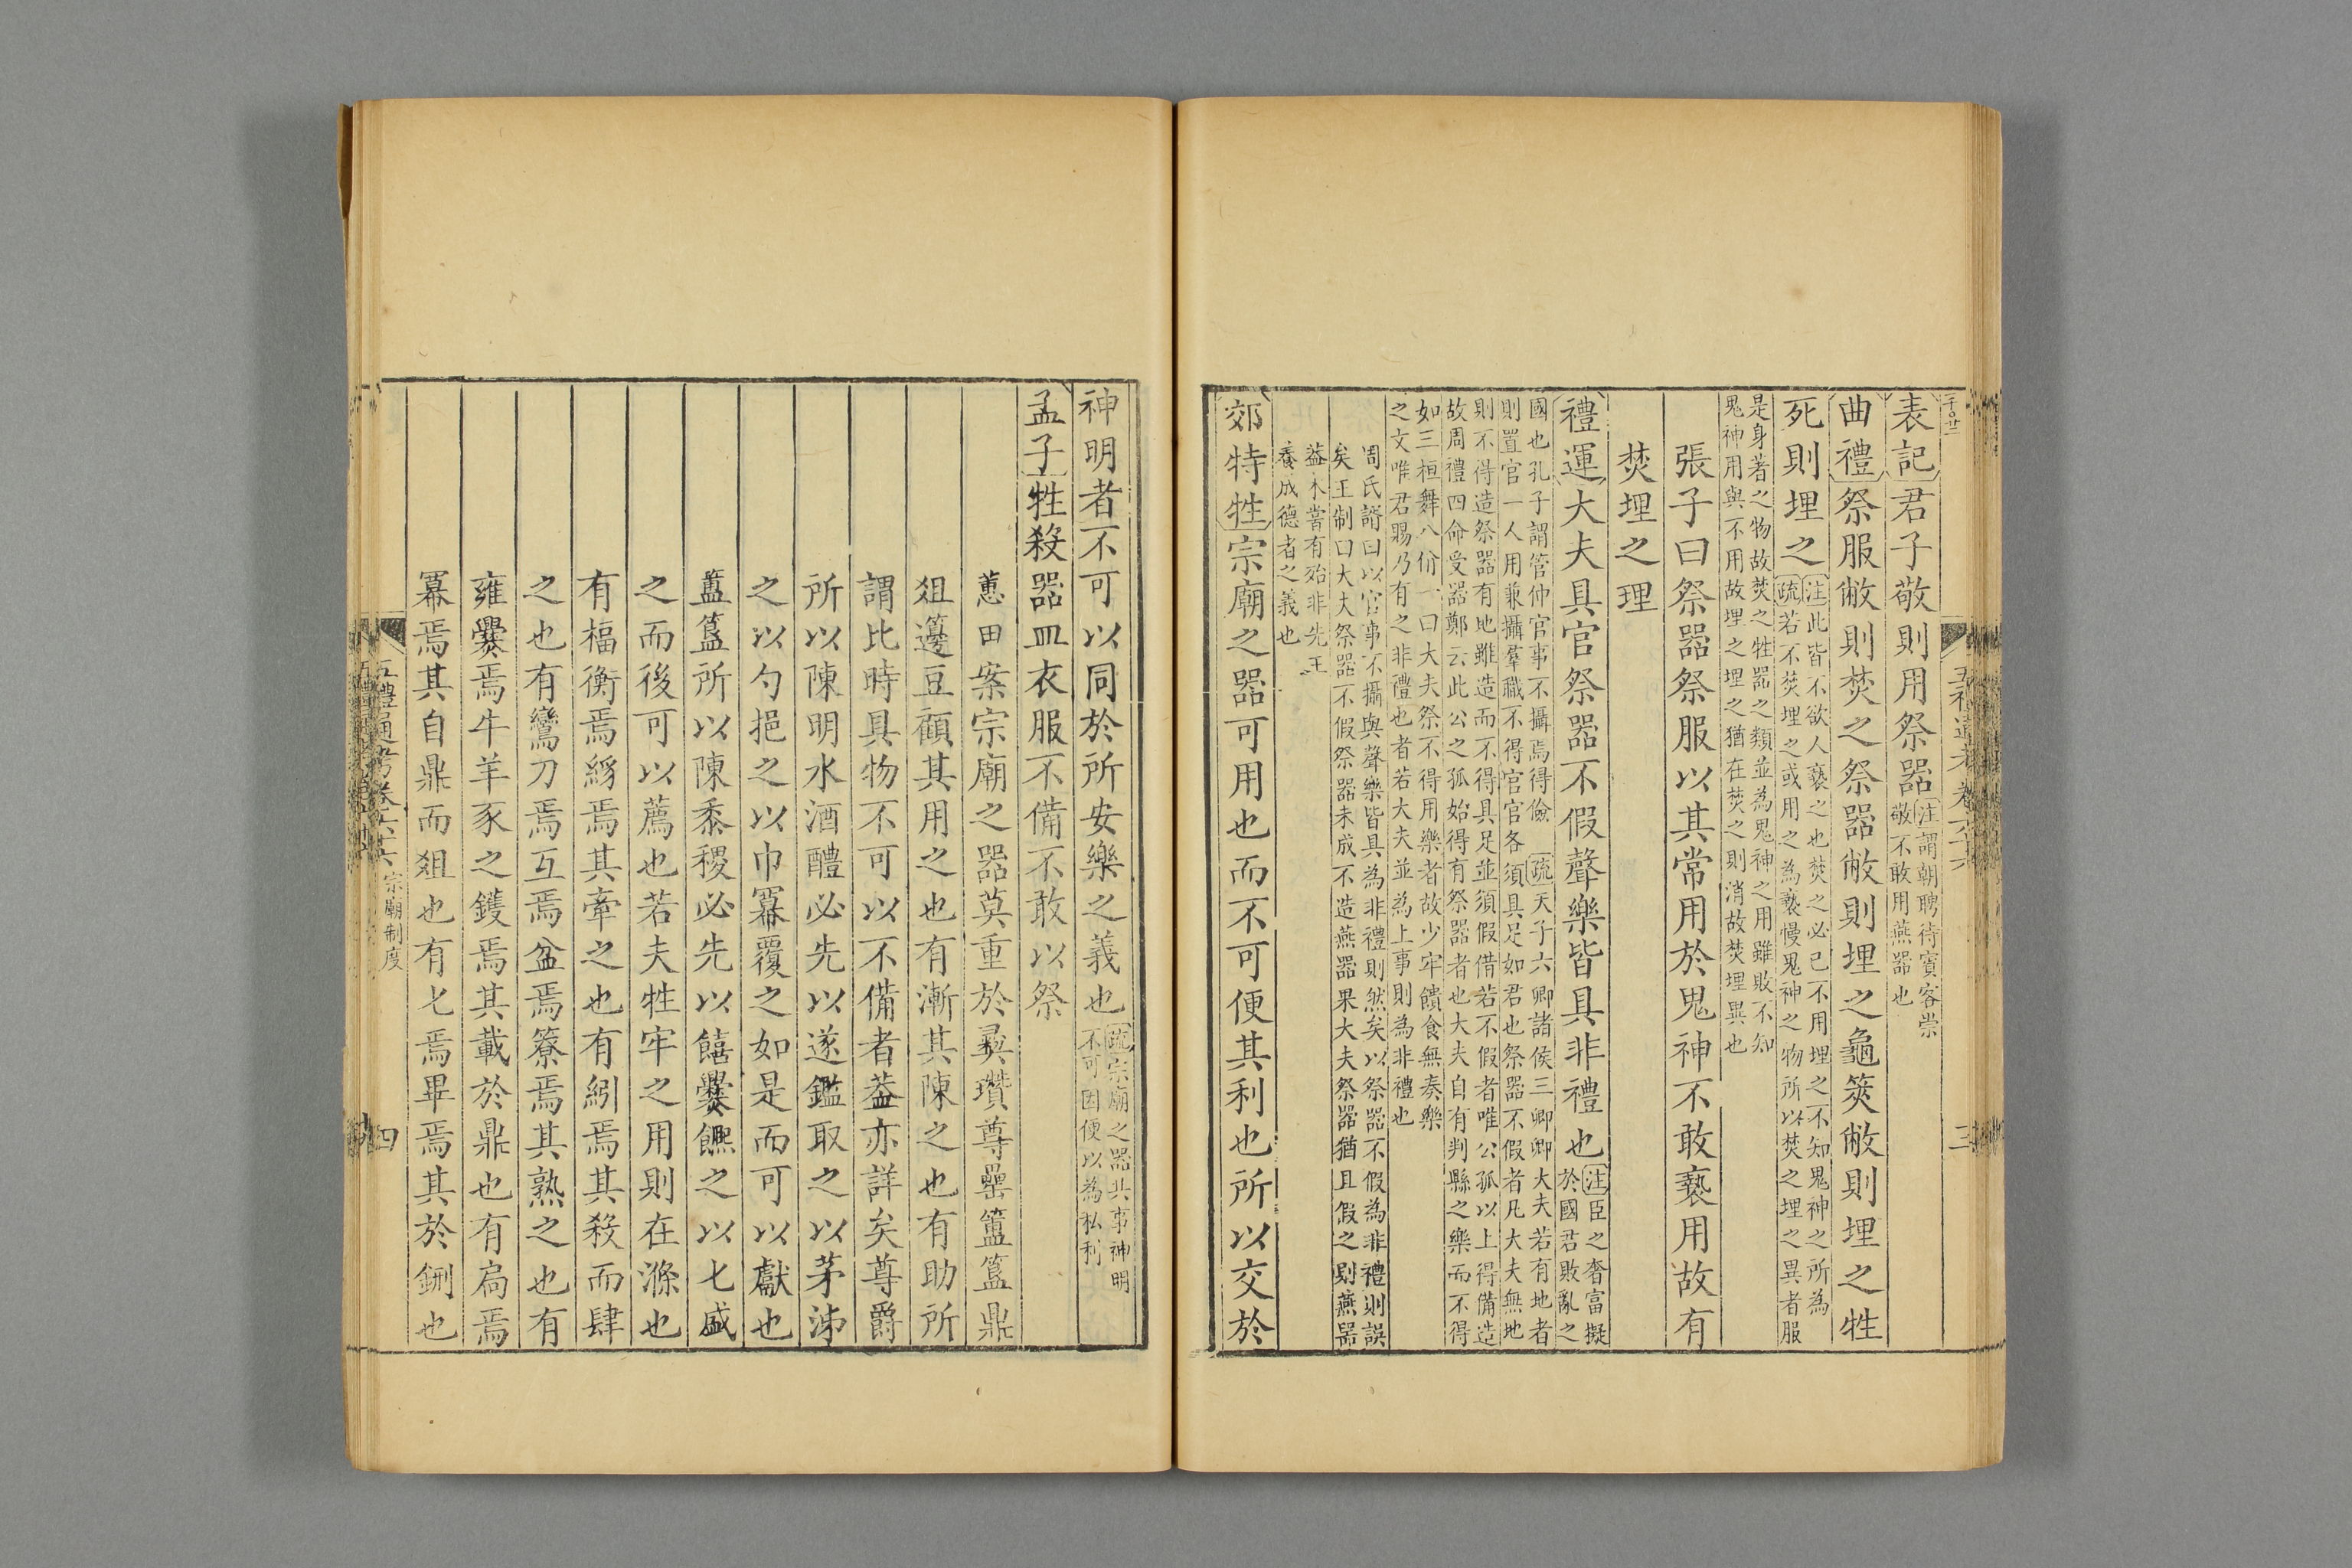 表記君子敬則用祭器注謂朝聘待賓客崇
敬不敢用燕器也
曲禮祭服敝則焚之祭器敝則埋之龜筴敝則埋之牲
死則埋之注此皆不欲人褻之也焚之必已不用埋之不知鬼神之所為
疏若不焚埋之或用之為褻慢鬼神之物所以焚之埋之異者服
是身著之物故焚之牲器之類並為鬼神之用雖敗不知
鬼神用與不用故埋之埋之猶在焚之則消故焚埋異也
張子曰祭器祭服以其常用於鬼神不敢褻用故有
焚埋之理
禮運大夫具官祭器不假聲樂皆具非禮也注臣之奢富擬
於國君敗亂之
國也孔子謂管仲官事不攝焉得儉 疏天子六卿諸侯三卿卿大夫若有地者
則置官一人用兼攝羣職不得官官各須具足如君也祭器不假者凡大夫無地
則不得造祭器有地雖造而不得具足並須假借若不假者唯公孤以上得備造
故周禮四命受器鄭云此公之孤始得有祭器者也大夫自有判縣之樂而不得
如三桓舞八佾一曰大夫祭不得用樂者故少牢饋食無奏樂
之文唯君賜乃有之非禮也者若大夫並為上事則為非禮也
周氏諝曰以官事不攝與聲樂皆具為非禮則然矣以祭器不假為非禮則誤
矣王制曰大夫祭器不假祭器未成不造燕器果大夫祭器猶且假之則燕器
葢不嘗有殆非先王
養成德者之義也
郊特牲宗廟之器可用也而不可便其利也所以交於
神明者不可以同於所安樂之義也疏宗廟之器共事神明
不可因便以為私利
孟子牲殺器皿衣服不備不敢以祭
蕙田案宗廟之器莫重於彞瓚尊罍簠簋鼎
俎籩豆顧其用之也有漸其陳之也有助所
謂比時具物不可以不備者葢亦詳矣尊爵
所以陳明水酒醴必先以遂鑑取之以茅沛
之以勺挹之以巾冪覆之如是而可以獻也
簠簋所以陳黍稷必先以饎爨饎之以匕盛
之而後可以薦也若夫牲牢之用則在滌也
有楅衡焉綍焉其牽之也有絼焉其殺而肆
之也有鸞刀焉互焉盆焉簝焉其熟之也有
雍爨焉牛羊豕之鑊焉其載於鼎也有扃焉
冪焉其自鼎而俎也有匕焉畢焉其於鉶也
五禮通考卷六十六 宗廟制度
四